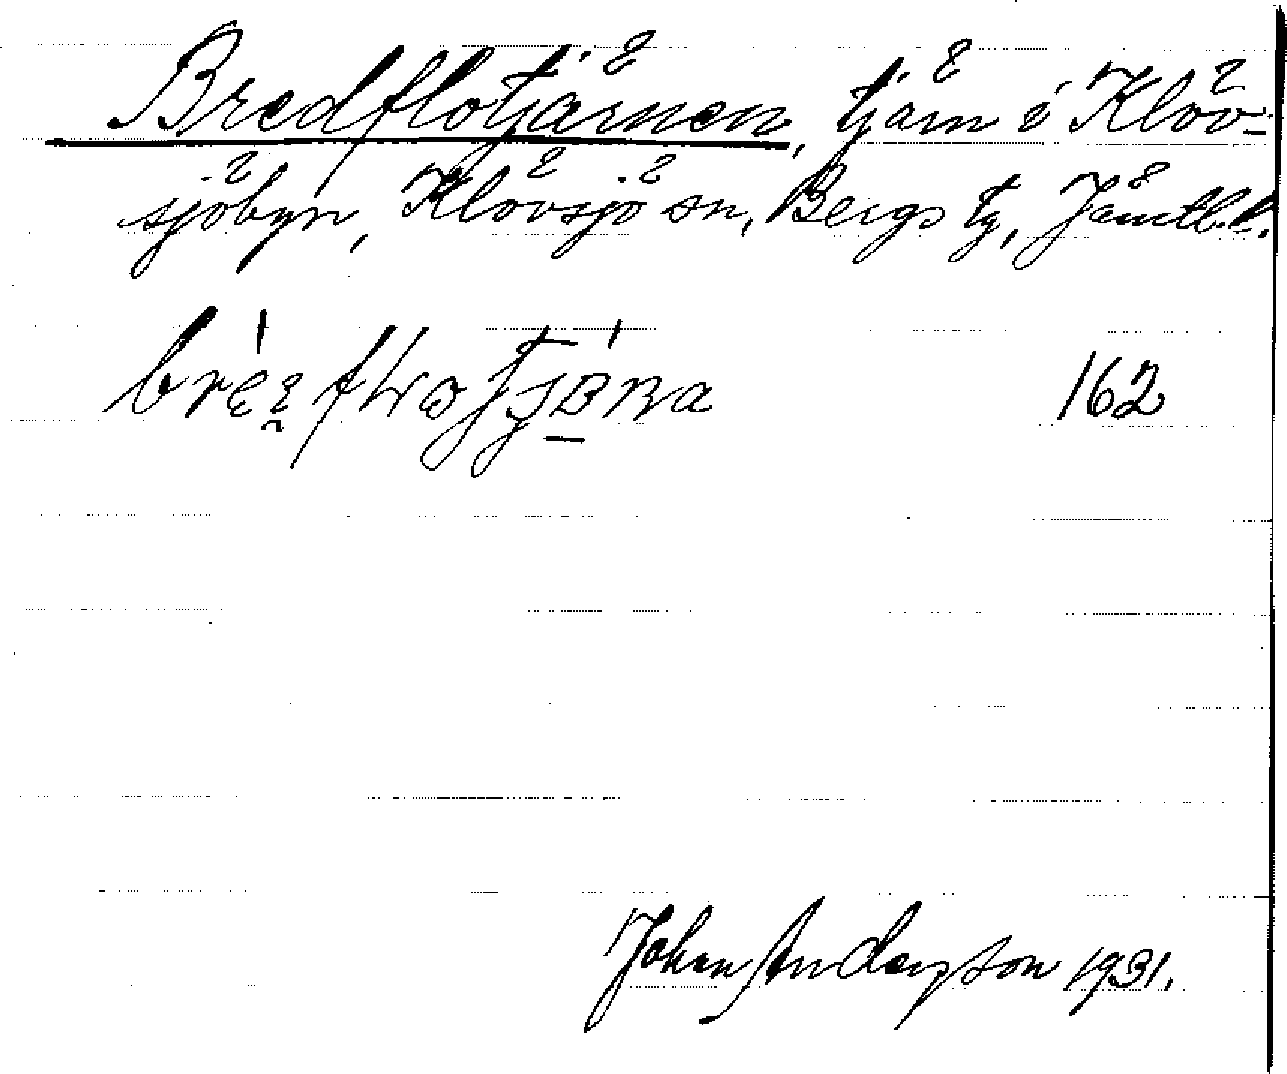 Bredflotjärnen, tjärn i Klöv-
sjöbyn, Klövsjö sn, Bergs tg, Jämtl. l.
162
Johan Anderson 1931.